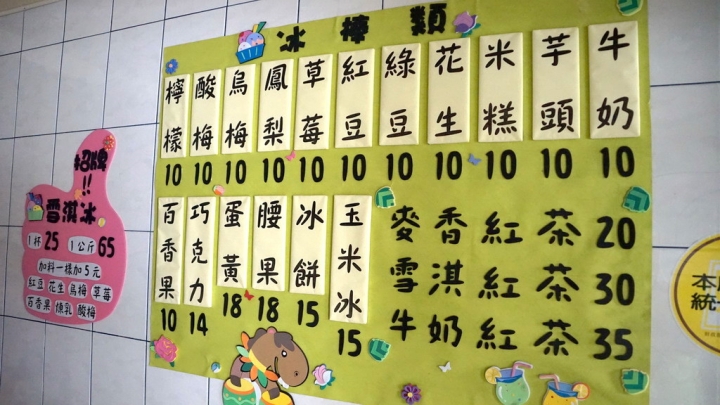 冰棒類
檸檬 酸梅 烏梅 鳳梨 草莓 紅豆 綠豆 花生 米糕 芋頭 牛奶
10 10 10 10 10 10 10 10 10 10 10
百香果 巧克力 蛋黃 腰果 冰餅 玉米冰
10 14 18 18 15 15
麥香紅茶 20
雪淇紅茶 30
牛奶紅茶 35
招牌!!
雪淇冰
1杯25 1公斤65
加料一樣加5元
紅豆 花生 烏梅 草莓
百香果 煉乳 酸梅